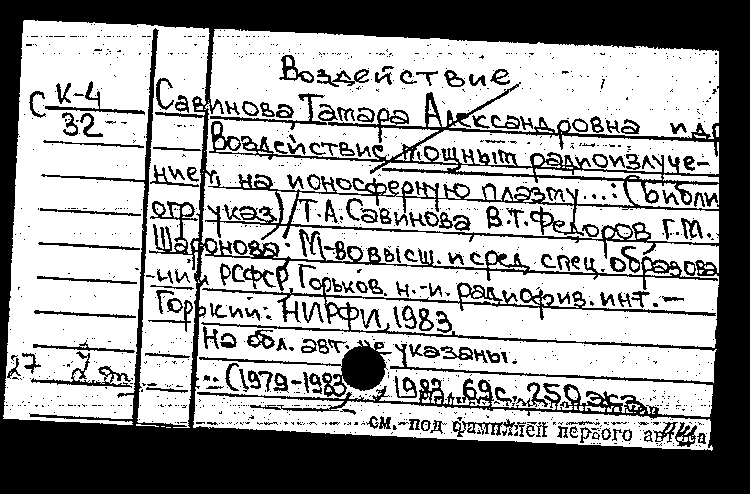 Воздействие
С К-4 Савинова, Тамара Александровна и др
32
Воздействие мощным радиоизлуче-
нием на ионосферную плазму...: (Библи
огр. указ) / Т.А. Савинова, В.Т. Федоров, Г.М.
Шаронова; М-во высш. и сред. спец. образова
-ния РСФСР, Горьков. н.-и. радиофиз. инт. —
Горький: НИРФИ, 1983.
На обл. авт. не указаны.
27
(1979-1983), 1983, 69 с. 250 экз
см. под фамилией первого автора